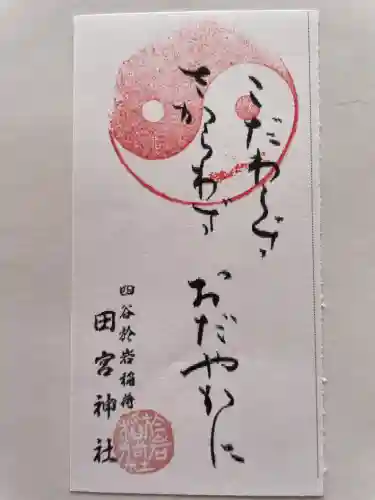 こだわらず
さからわず
おだやかに
四谷於岩稲荷
田宮神社